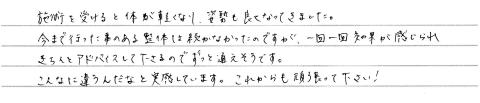 施術を受けると体が軽くなり、姿勢も良くなってきました。
今まで行った事のある整体は続かなかったのですが、一回一回効果が感じられ
きちんとアドバイスして下さるのでずっと通えそうです。
こんなに違うんだなと実感しています。これからも頑張って下さい！